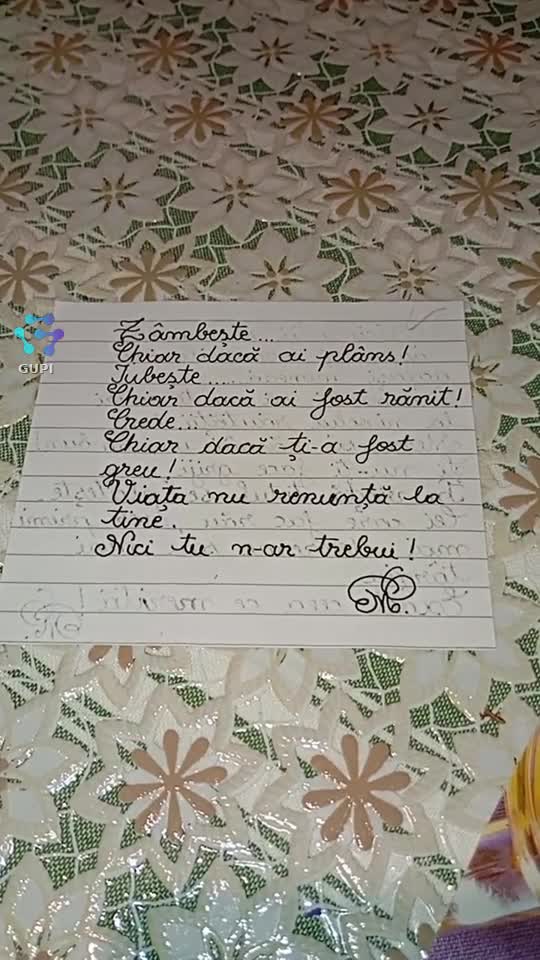 GUPI
Zâmbește...
Chiar dacă ai plâns!
Iubește.....
Chiar dacă ai fost rănit!
Crede...
Chiar dacă ți-a fost
greu!
Viața nu renunță la
tine.
Nici tu n-ar trebui!
M.